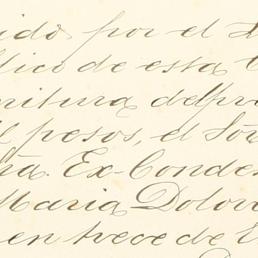 ido por el
lico de esta
ritura de pre
pesos, el Señ
ña. Ex-Conde
Maria Dolor
en trece de